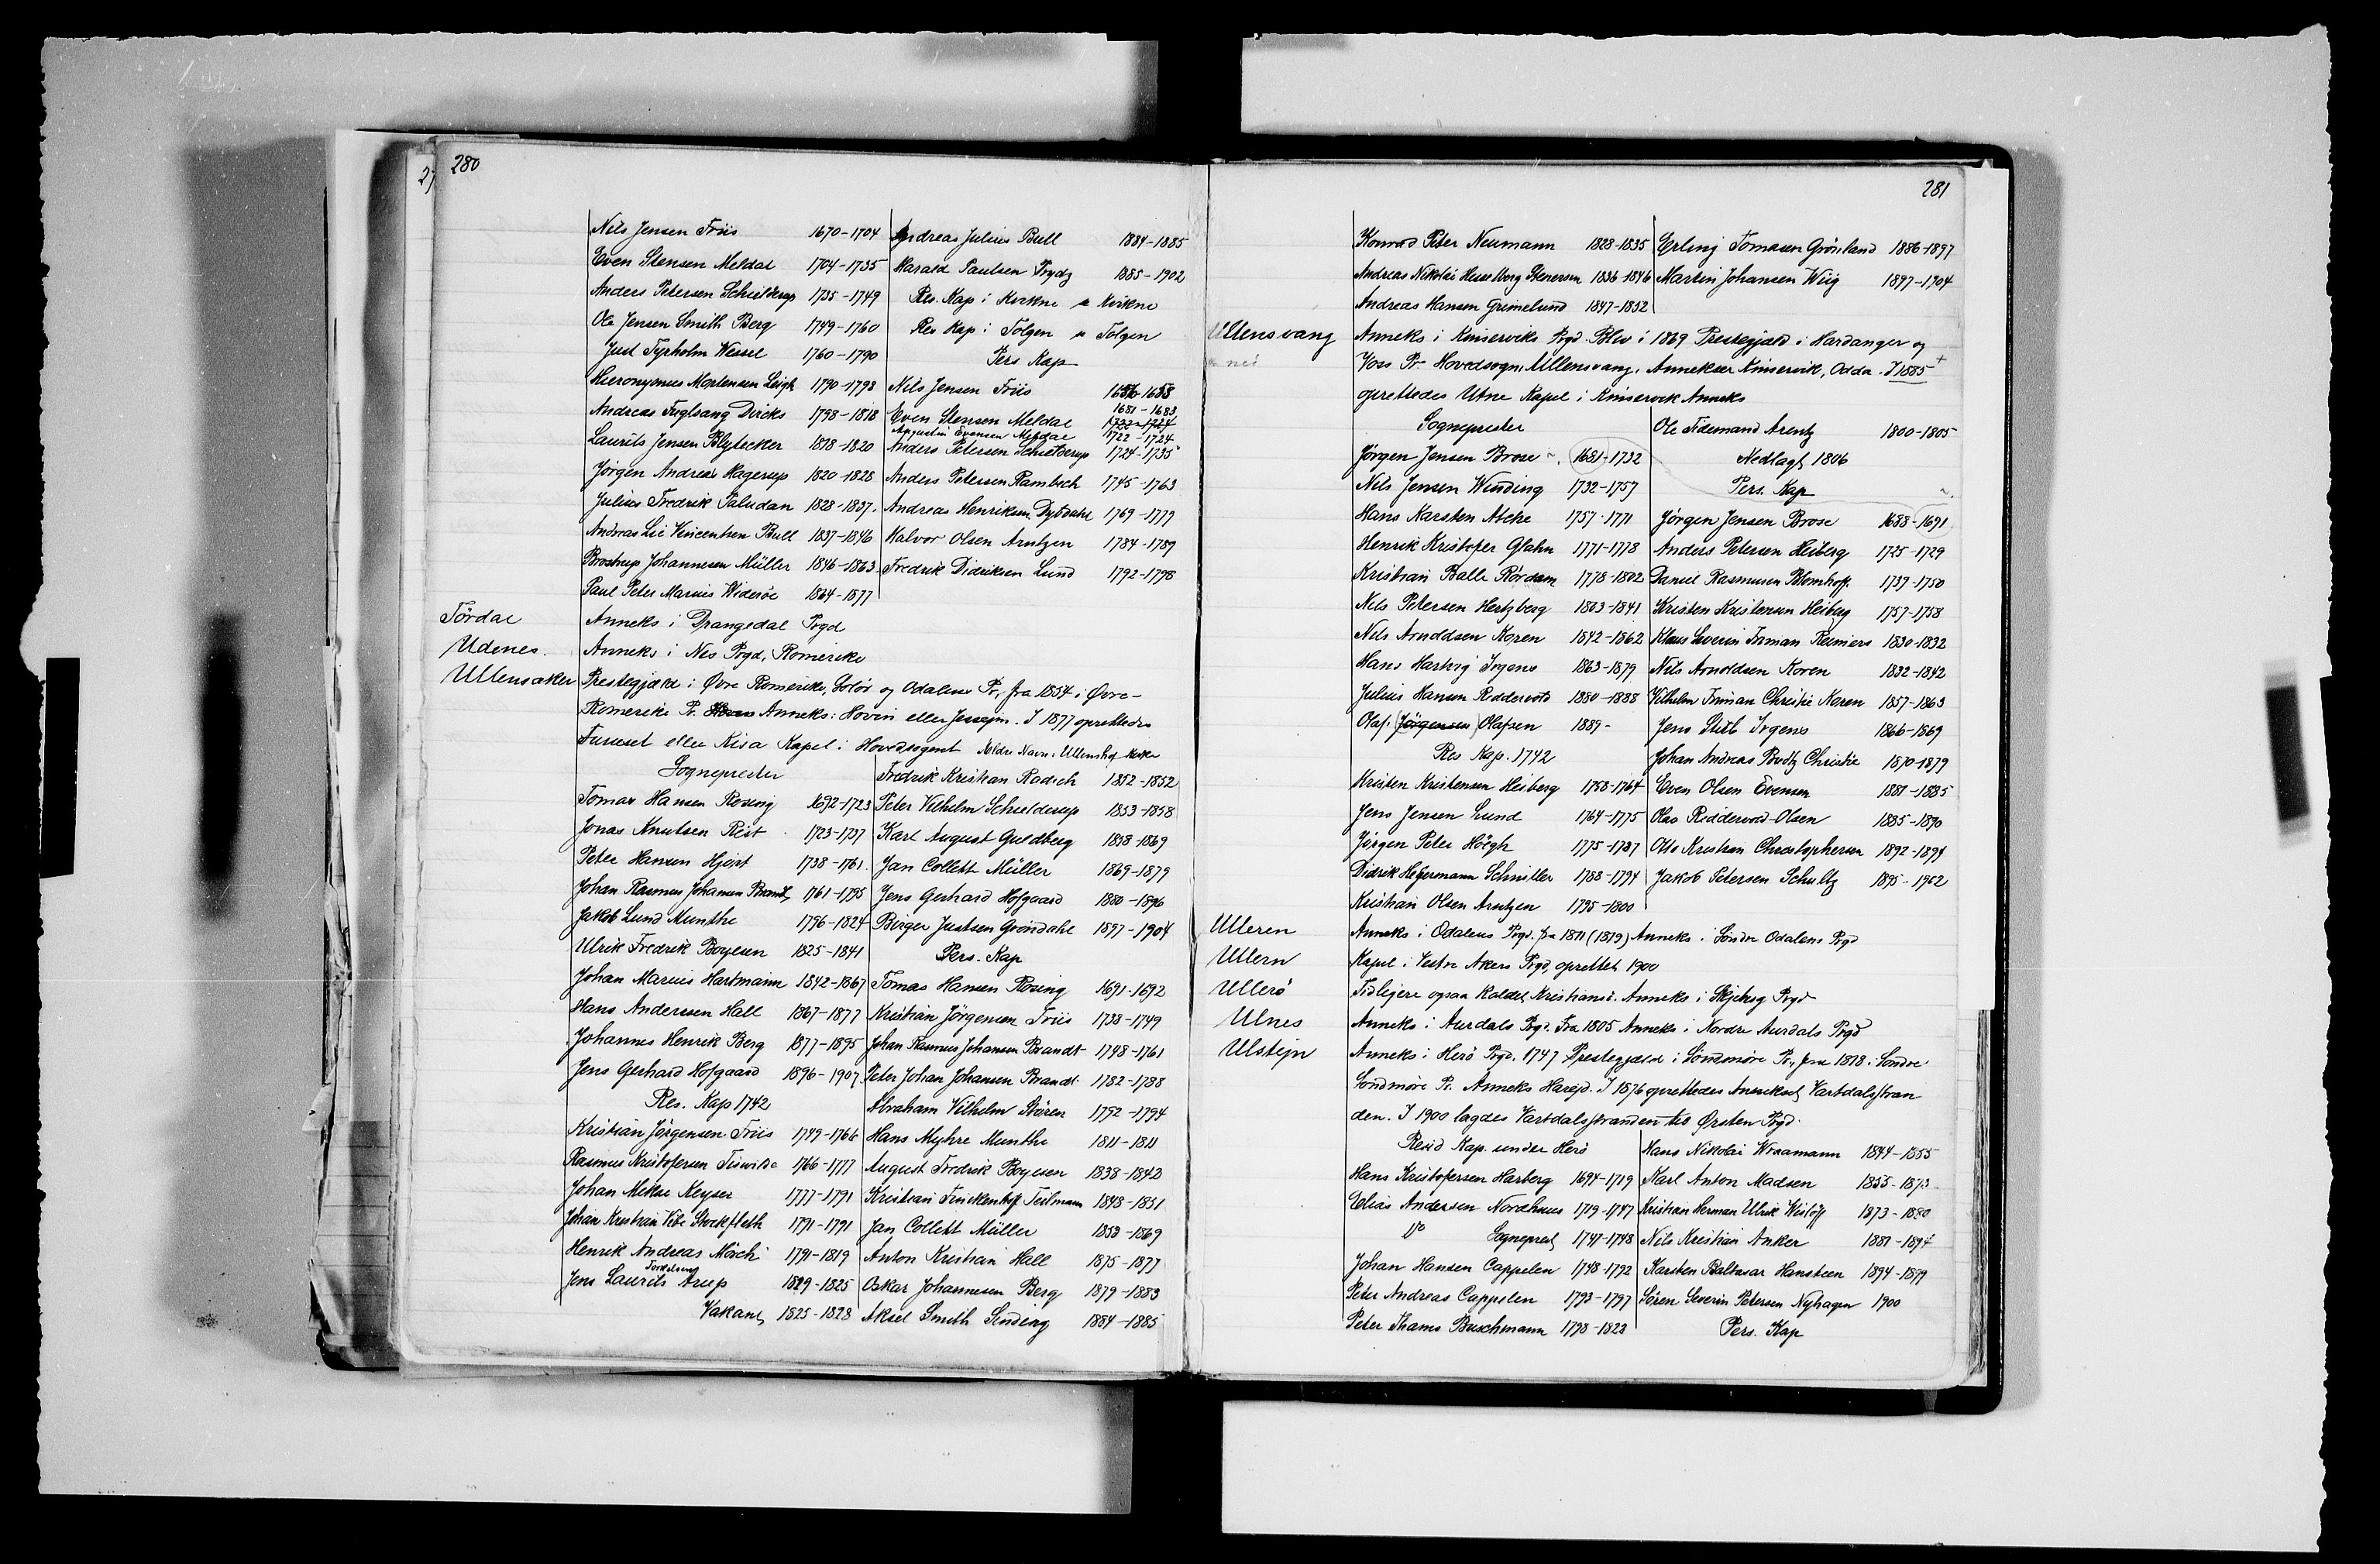 280
Nils Jensen Friis 1670-1704
Even Stensen Meldal 1704-1735
Anders Petersen Schielderup 1735-1749
Ole Jensen Smith Berg 1749-1760
Just Tyrholm Wessel 1760-1790
Hieronymus Mortensen Leigh 1790-1798
Andreas Fuglsang Dircks 1798-1818
Laurits Jensen Blytecker 1818-1820
Jørgen Andreas Hagerup 1820-1828
Julius Fredrik Paludan 1828-1837.
Andreas Lie Vincentsen Bull 1837-1846
Brostrup Johannesen Müller 1846-1863
Paul Peter Marius Widerøe 1864-1877
Andreas Julius Bull 1884-1885
Harald Paulsen Prydz 1885-1902
Res. Kap i Kvikne Kvikne
Res Kap i Tolgen Tolgen
Pers Kap
Nils Jensen Friis
1681-1683
Even Stensen Meldal 1722-1724
Augustin Evensen Meldal 1722-1724
Anders Petersen Schielderup 1724-1735
Anders Petersen Rambech 1745-1763
Andreas Henriksen Dybdahl 1769-1779
Halvor Olsen Arntzen 1784-1789
Fredrik Didriksen Lund 1792-1798
Tördal Anneks i Drangedal Prgd
Udenes. Anneks i Nes Prgd, Romerike
Ullensaker Prestegjæld i Øvre Romerike, Solör og Odalens Pr, fra 1854 i Øvre-
Romerike Pr. Anneks: Hovin eller Jessejm. I 1877 oprettedes
Furuset eller Kisa Kapel i Hovedsognet Ældre Navn: Ullinshof Kirke
Sogneprester
Tomas Hansen Rosing 1692-1723
Jonas Knutsen Rist 1723-1737
Peter Hansen Hjort 1738-1761.
Johan Rasmus Johansen Brandt 1761-1795
Jakob Lund Munthe 1796-1824
Ulrik Fredrik Boyesen 1825-1841
Johan Marius Hartmann 1842-1867
Hans Anderssen Hall 1867-1877
Johannes Henrik Berg 1877-1895
Jens Gerhard Hofgaard 1896-1907
Res. Kap 1742
Kristian Jörgensen Friis 1749-1766
Rasmus Kristofersen 1766-1777
Johan Mekse Keyser 1777-1791
Johan Kristian Vibe Stockfleth 1791-1791
Henrik Andreas Mörch 1791-1819
Torkelsen
Jens Laurits Arup 1819-1825
Vakant 1825-1828
Fredrik Kristian Radich 1852-1852
Peter Vilhelm Schielderup 1853-1858
Karl August Guldberg 1858-1869
Jan Collett Müller 1869-1879
Jens Gerhard Hofgaard 1880-1896
Birger Justsen Gröndahl 1897-1904
Pers. Kap
Tomas Hansen Rosing 1691-1692
Kristian Jörgensen Friis 1738-1749
Johan Rasmus Johansen Brandt 1748-1761
Peter Johan Johansen Brandt 1782-1788
Abraham Vilhelm Stören 1792-1794
Hans Myhre Munthe 1811-1811
August Fredrik Boyesen 1838-1842
Kristian Teilmann 1848-1851
Jan Collett Müller 1853-1869
Anton Kristian Hall 1875-1877
Oskar Johannesen Berg 1879-1883
Aksel Smith Sinding 1884-1885
281
Konrad Peter Neumann 1828-1835
Andreas Nikolai Hesselberg Stenersen 1836-1846
Andreas Hansen Grimelund 1847-1852
Erling Tomasen Grönland 1886-1897
Martin Johansen Wiig 1897-1904
Ullensvang Anneks i Kinserviks Prgd. Blev i 1869 Prestegjæld i Hardanger og
Voss Pr Hovedsogn: Ullensvang. Annekser Kinservik, Odda. I 1885+
oprettedes Utne Kapel i Kinservik Anneks
Sogneprester
Jörgen Jensen Brose 1681-1732
Nils Jensen Winding 1732-1757
Hans Karsten Atche 1757-1771
Henrik Kristofer Glahn 1771-1778
Kristian Balle Rördam 1778-1802
Nils Petersen Hertzberg 1803-1841
Nils Arnoldsen Koren 1842-1862
Hans Hartvig Irgens 1863-1879
Julius Hansen Riddervold 1880-1888
Olaf (Jörgensen) Olafsen 1889-
Res Kap. 1742
Kristen Kristensen Heiberg 1758-1764
Jens Jensen Lund 1764-1775
Jörgen Peter Höegh 1775-1787
Didrik Hegermann Schnitler 1788-1794
Kristian Olsen Arntzen 1795-1800
Ole Tidemand Arentz 1800-1805
Nedlagt 1806
Pers. Kap
Jörgen Jensen Brose 1688-1691
Anders Petersen Heiberg 1725-1729
Daniel Rasmusen Blomhoff 1737-1750
Kristen Kristensen Heiberg 1757-1758
Klaus Severin Irman Reimers 1830-1832
Nils Arnoldsen Koren 1832-1842
Vilhelm Friman Christie Koren 1857-1863
Jens Stub Irgens 1866-1869
Johan Andreas Budtz Christie 1870-1879
Even Olsen Evensen 1881-1885
Olav Riddervold Olsen 1885-1890
Otto Kristian Christophersen 1892-1894
Jakob Petersen Schultz 1895-1902
Ulleren Anneks i Odalens Prgd. fra 1811 (1819) Anneks i Söndre Odalens Prgd
Ullern Kapel i Vestre Akers Prgd, oprettet 1900
Ullerö Tidligere ogsaa kaldet Kristiansö. Anneks i Skjeberg Prgd
Ulnes Anneks i Aurdals Prgd. Fra 1805 Anneks i Nordre Aurdals Prgd
Ulstejn Anneks i Herö Prgd. 1747 Prestegjæld i Söndmöre Pr, fra 1818 i Söndre
Söndmöre Pr. Anneks Harejd. I 1876 oprettedes Annekset Vartdalsstran
den. I 1900 lagdes Vartdalsstranden til Ørsten Prgd.
Resid Kap. under Herö
Hans Kristofersen Harberg 1694-1719
Elias Andersen Nordhuus 1719-1747
Do Sogneprest 1747-1748
Johan Hansen Cappelen 1748-1792
Peter Andreas Cappelen 1793-1797
Peter Thams Buschmann 1798-1828
Hans Nikolai Wraamann 1844-1855
Karl Anton Madsen 1855-1873
Kristian Herman Ulrik Wislöff 1873-1880
Nils Kristian Anker 1881-1894
Karsten Baltasar Hansteen 1894-1899
Sören Severin Petersen Nyhagen 1900
Pers. Kap